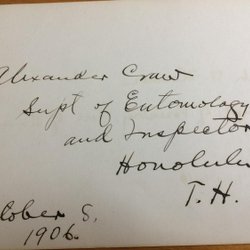 Alexander Craw
Supt of Entomology
and Inspector
Honolulu
T. H.
tober 8.
1906.